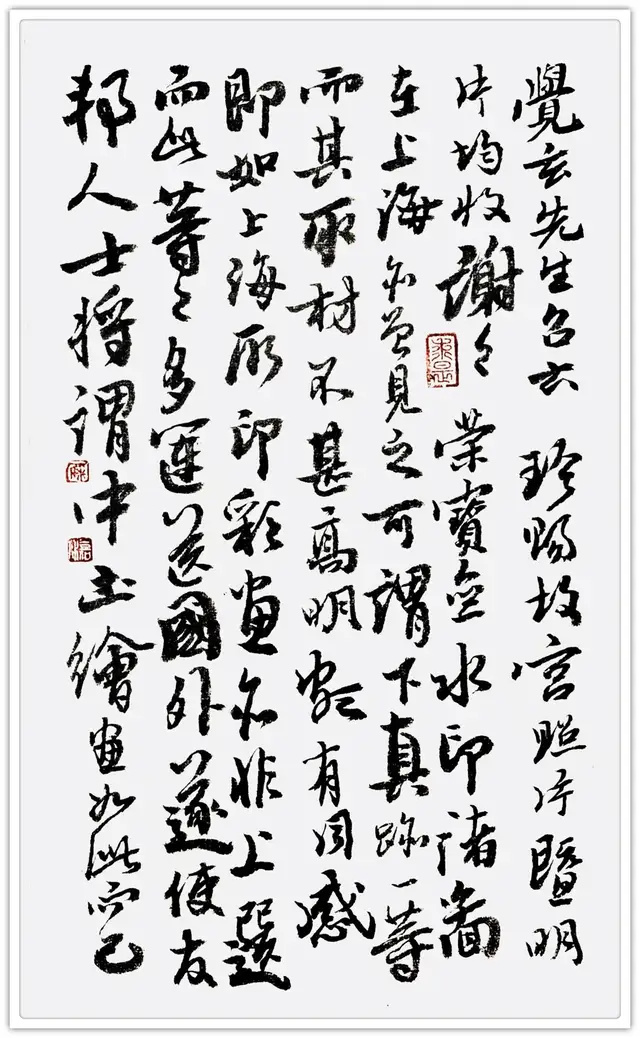 覺玄先生台 珍賜故宮照片暨明
片均收謝々 榮寶齋水印諸圖
在上海亦曾見之可謂下真跡一等
而其取材不甚高明有同感
即如上海所印彩畫亦非上選
而此等々多運送國外遂使友
邦人士將謂中土繪畫如此而已